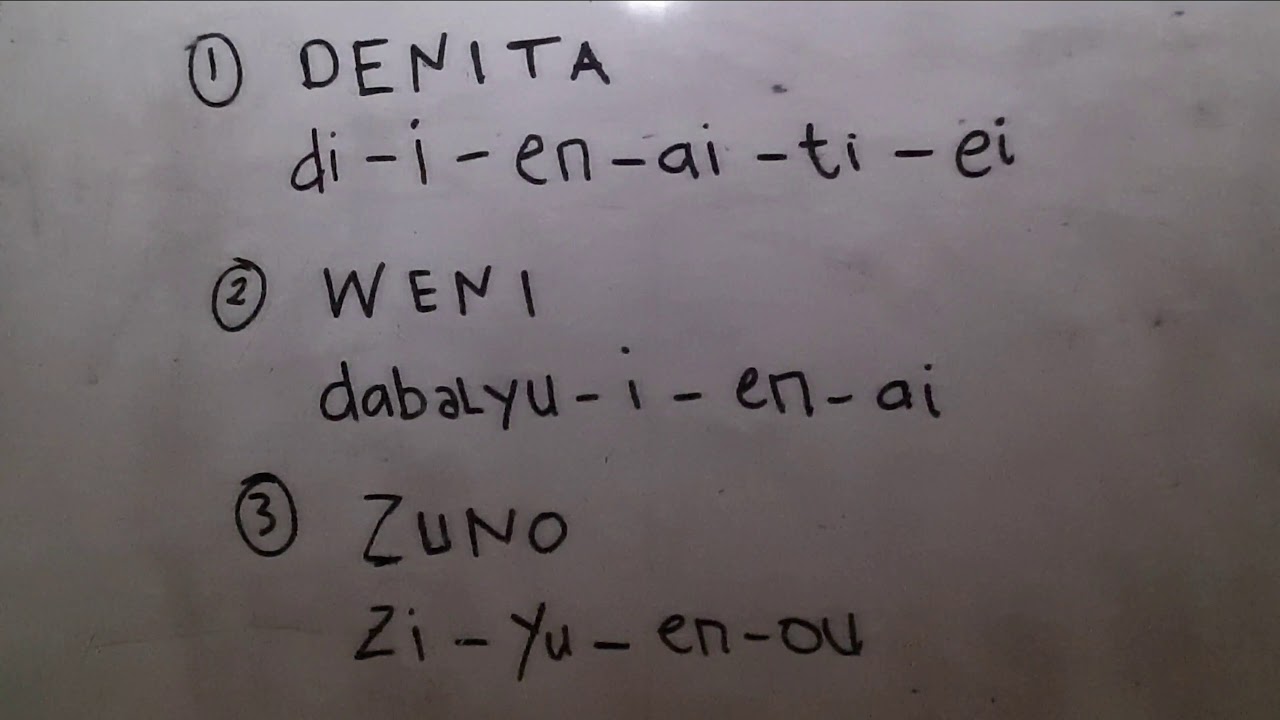 ① DENITA
di - i - en - ai - ti - ei
② WENI
dabəlyu - i - en - ai
③ ZUNO
zi - yu - en - ou